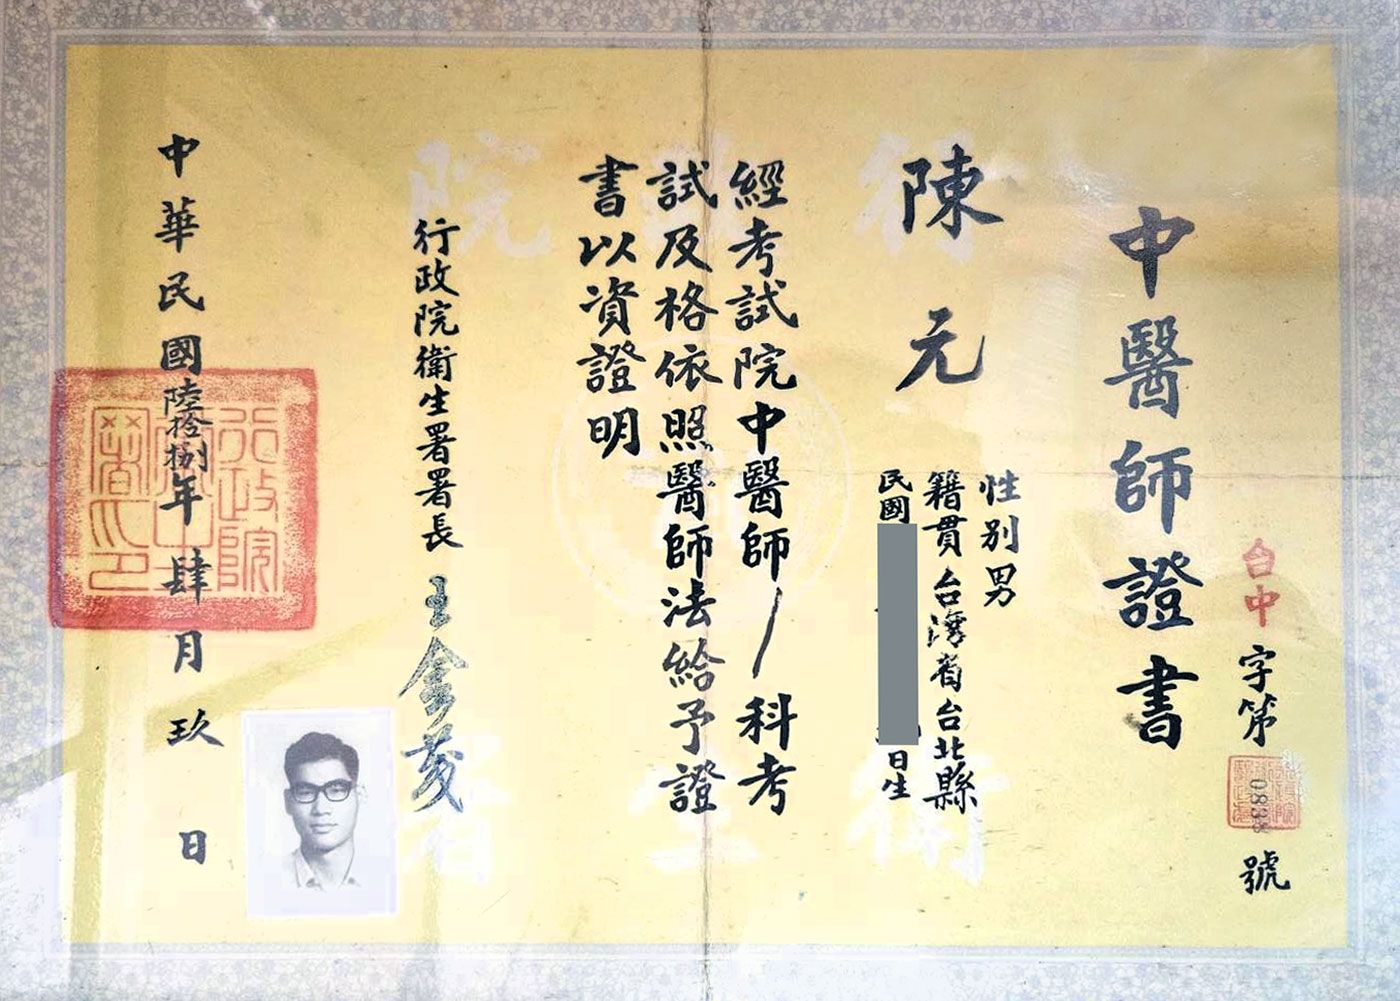 台中字第0838號
中醫師證書
陳元
性別男
籍貫台灣省台北縣
民國 日生
經考試院中醫師/科考
試及格依照醫師法給予證
書以資證明
行政院衛生署署長王金茂
中華民國陸拾捌年肆月玖日
行政院衛生署印